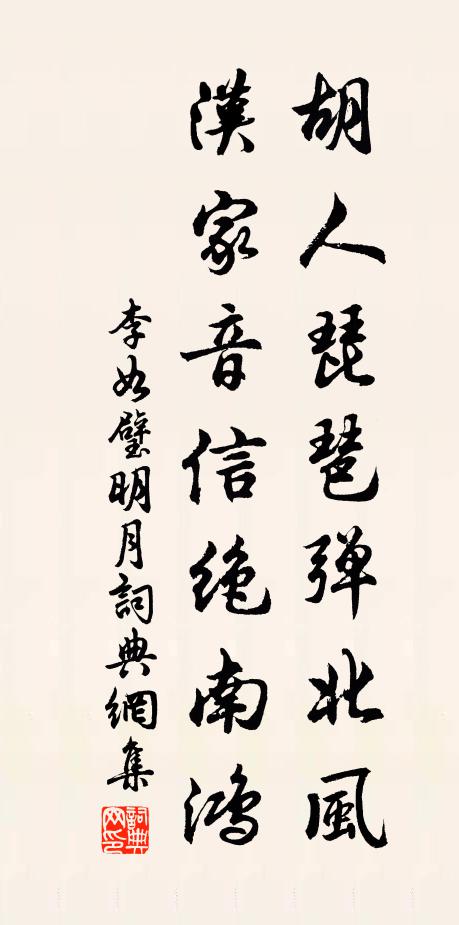 胡人琵琶弹北風
漢家音信绝南鴻
李如璧明月詞典網集
詞典網印